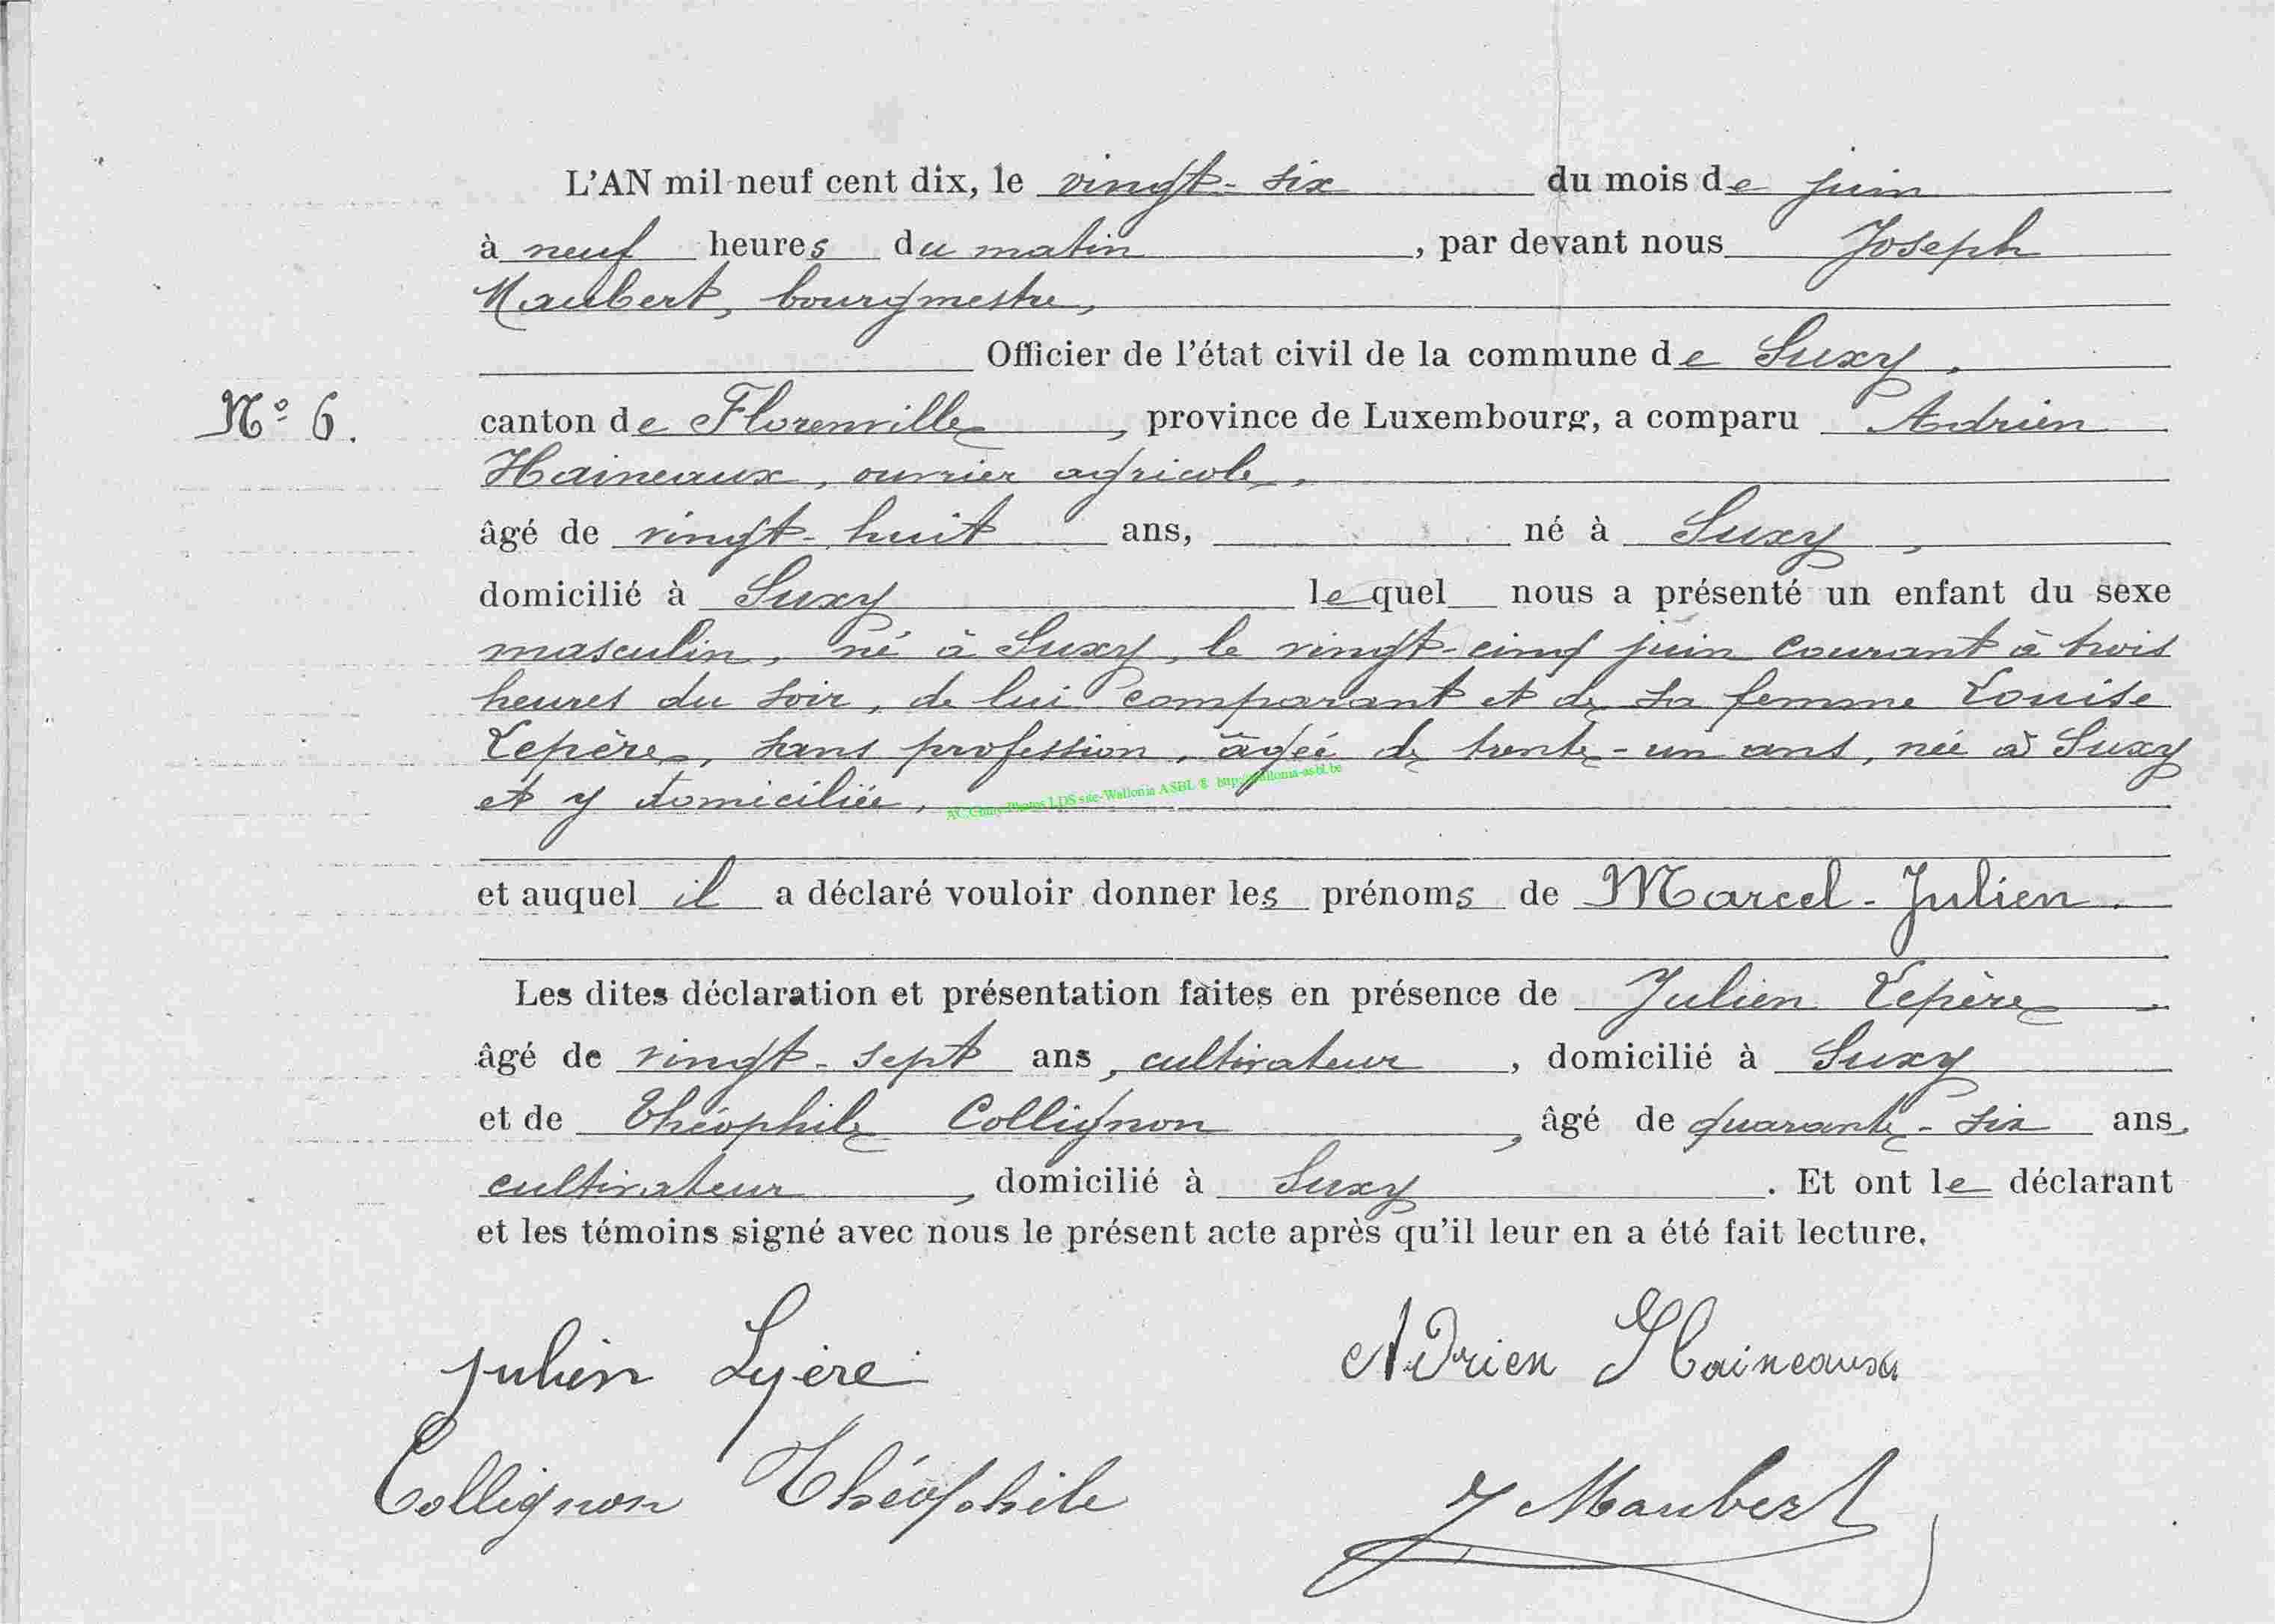 L'AN mil neuf cent dix, le vingt-six du mois de juin
à neuf heures du matin, par devant nous Joseph
Maubert, bourgmestre,
Officier de l'état civil de la commune de Suxy,
N° 6.
canton de Florenville, province de Luxembourg, a comparu Adrien
Haineaux, ouvrier agricole,
âgé de vingt-huit ans, né à Suxy,
domicilié à Suxy lequel nous a présenté un enfant du sexe
masculin, né à Suxy, le vingt-cinq juin courant à trois
heures du soir, de lui comparant et de sa femme Louise
Lepère, sans profession, âgée de trente-un ans, née à Suxy
et y domiciliée,
AC.Chiny-Photos LDS site-Wallonia ASBL § http://wallonia-asbl.be
et auquel il a déclaré vouloir donner les prénoms de Marcel-Julien.
Les dites déclaration et présentation faites en présence de Julien Lepère,
âgé de vingt-sept ans, cultivateur, domicilié à Suxy
et de Théophile Collignon, âgé de quarante-six ans,
cultivateur, domicilié à Suxy. Et ont le déclarant
et les témoins signé avec nous le présent acte après qu'il leur en a été fait lecture.
Julien Lepère Adrien Haineaux
Collignon Théophile J Maubert